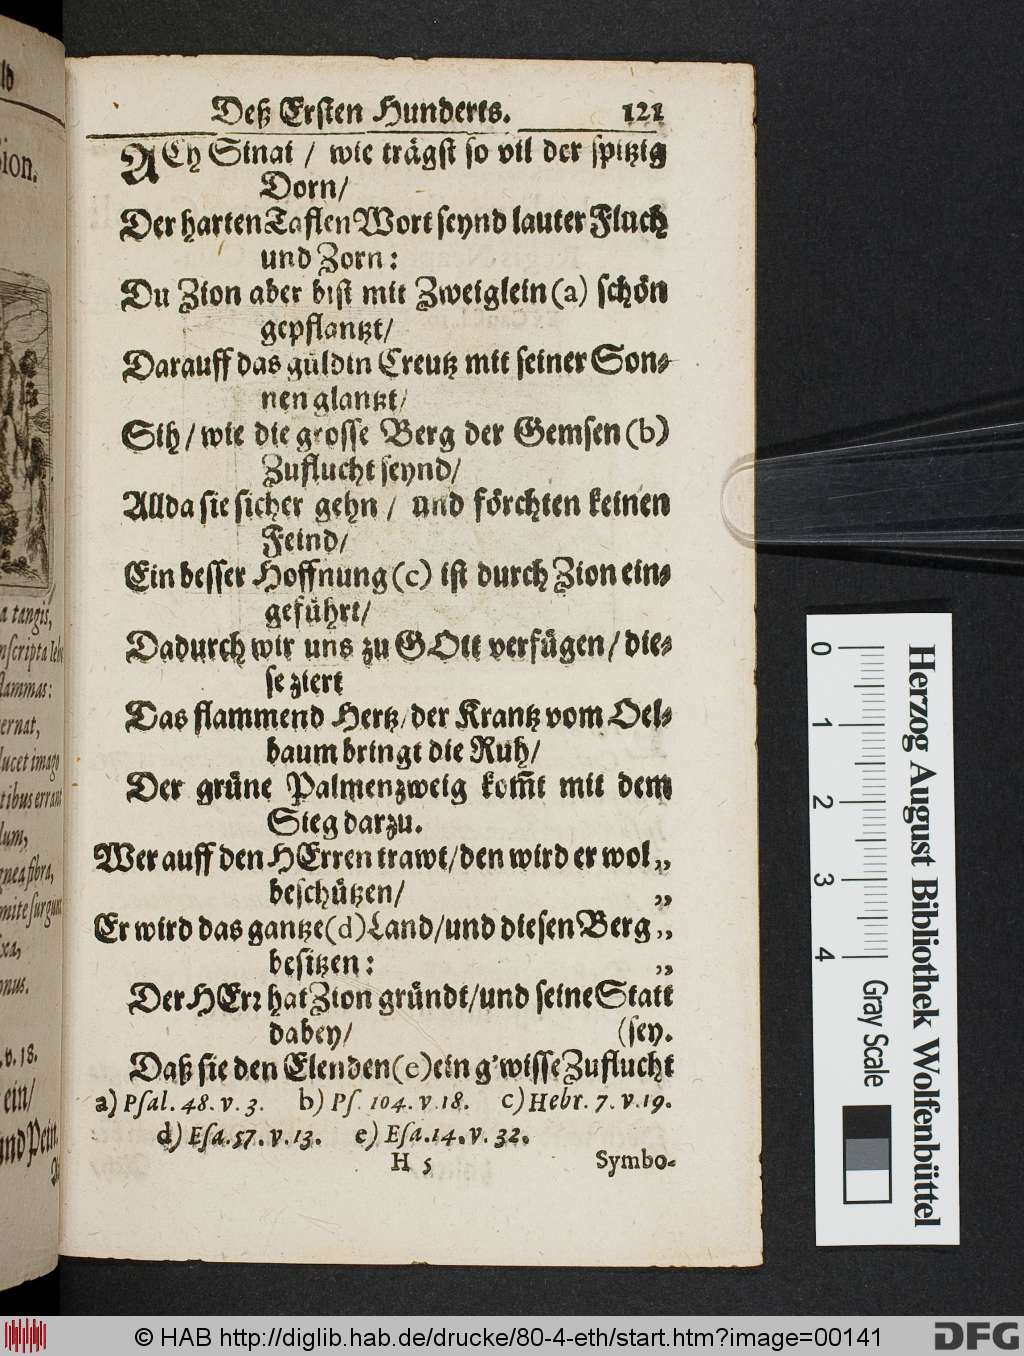 Deß Ersten Hunderts. 121
ACh Sinai / wie trägst so vil der spitzig
Dorn/
Der harten Taflen Wort seynd lauter Fluch
und Zorn:
Du Zion aber bist mit Zweiglein (a) schön
gepflantzt/
Darauff das güldin Creutz mit seiner Son-
nen glantzt/
Sih / wie die grosse Berg der Gemsen (b)
Zuflucht seynd/
Allda sie sicher gehn / und förchten keinen
Feind/
Ein besser Hoffnung (c) ist durch Zion ein-
geführt/
Dadurch wir uns zu GOtt verfügen / die-
se ziert
Das flammend Hertz / der Krantz vom Oel-
baum bringt die Ruh/
Der grüne Palmenzweig kom̃t mit dem
Sieg darzu.
Wer auff den HErren trawt / den wird er wol „
beschützen/ „
Er wird das gantze (d) Land / und diesen Berg „
besitzen: „
Der HErꝛ hat Zion gründt / und seine Statt
dabey/ (sey.
Daß sie den Elenden (e) ein g'wisse Zuflucht
a) Psal. 48. v. 3. b) Ps. 104. v. 18. c) Hebr. 7. v. 19.
d) Esa. 57. v. 13. e) Esa. 14. v. 32.
H 5 Symbo-
ld
ion.
a tangis,
nscripta
flammas:
ernat,
lucet imago
tibus errant
lum,
gnea fibra,
mite surgunt
xa,
onus.
. v. 18.
ein/
und Pein.
0 1 2 3 4
Gray Scale
Herzog August Bibliothek Wolfenbüttel
© HAB http://diglib.hab.de/drucke/80-4-eth/start.htm?image=00141
DFG